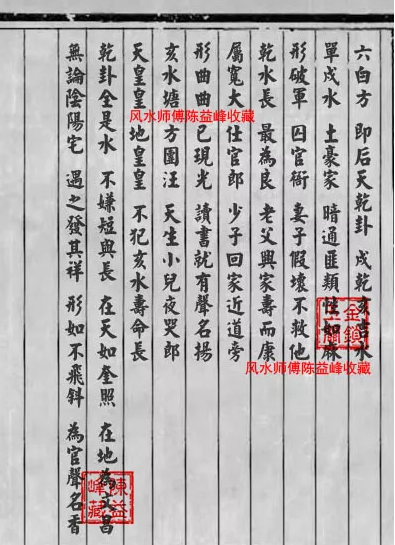 六白方 即后天乾卦 戌乾亥吉水
單戌水 土豪家 暗通匪類性如麻
形破軍 囚官衙 妻子假壞不救他
乾水長 最為良 老父興家壽而康
屬寬大 仕官郎 少子回家近道旁
形曲曲 已現光 讀書就有聲名揚
亥水塘 方圍汪 天生小兒夜哭郎
天皇皇 地皇皇 不犯亥水壽命長
乾卦全是水 不嫌短與長 在天如奎照 在地為文昌
無論陰陽宅 遇之發其祥 形如不飛斜 為官聲名香
风水师傅陈益峰收藏
风水师傅陈益峰收藏
金鎖玉關
陳益峰藏